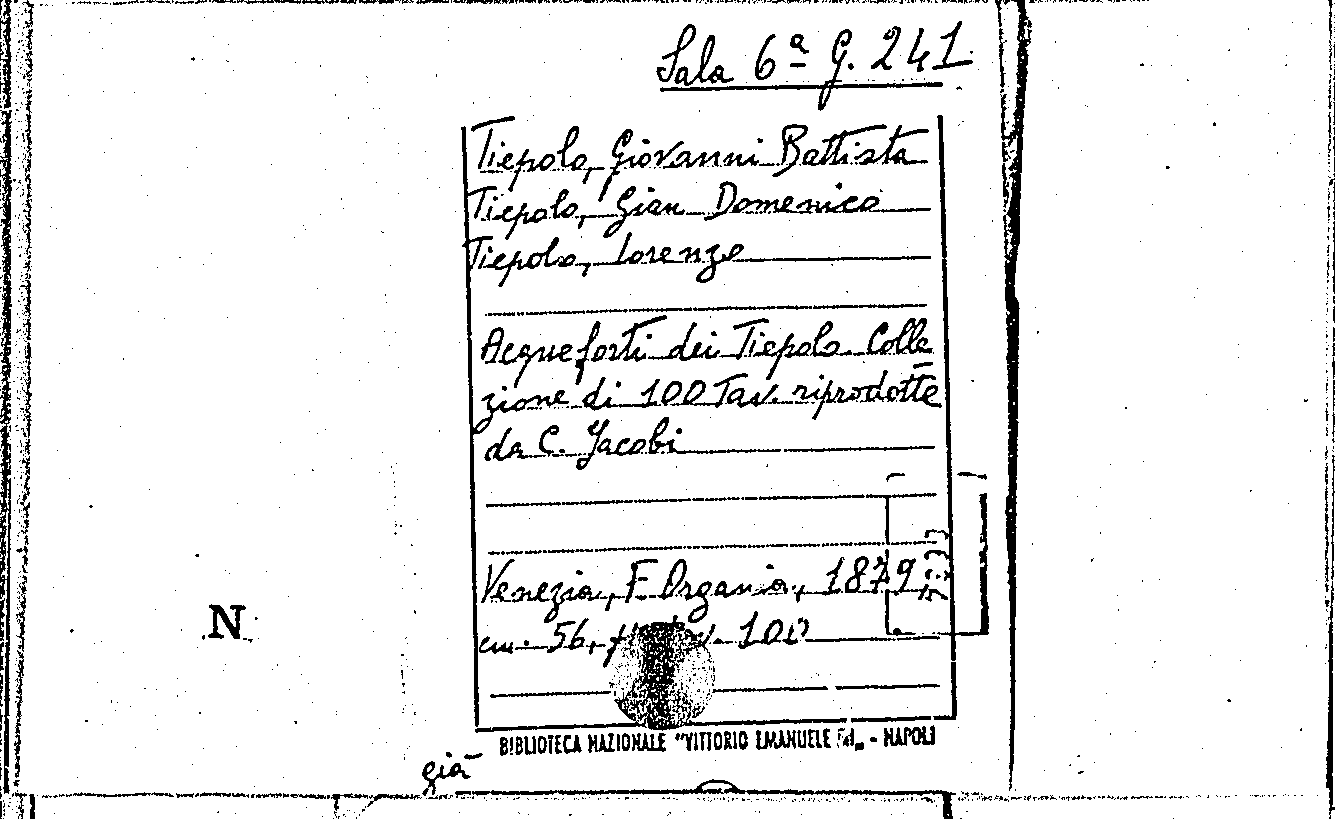 Sala 6ª G. 241
Tiepolo, Giovanni Battista
Tiepolo, Gian Domenico
Tiepolo, Lorenzo
Acqueforti dei Tiepolo. Colle=
zione di 100 Tav. riprodotte
da C. Jacobi
Venezia, F. Ongania, 1879
cm. 56, 100
N
BIBLIOTECA NAZIONALE "VITTORIO EMANUELE" - NAPOLI
già